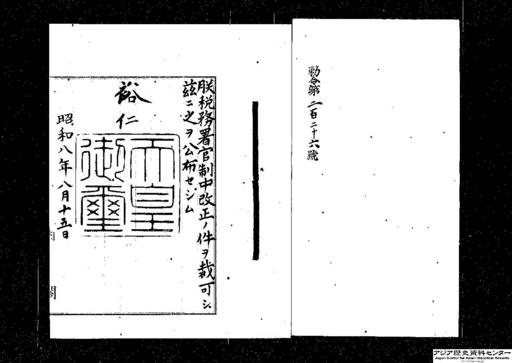 勅令第二百二十六號
朕税務署官制中改正ノ件ヲ裁可シ
茲ニ之ヲ公布セシム
裕仁
天皇御璽
昭和八年八月十五日
内閣
アジア歴史資料センター
Japan Center for Asian Historical Records